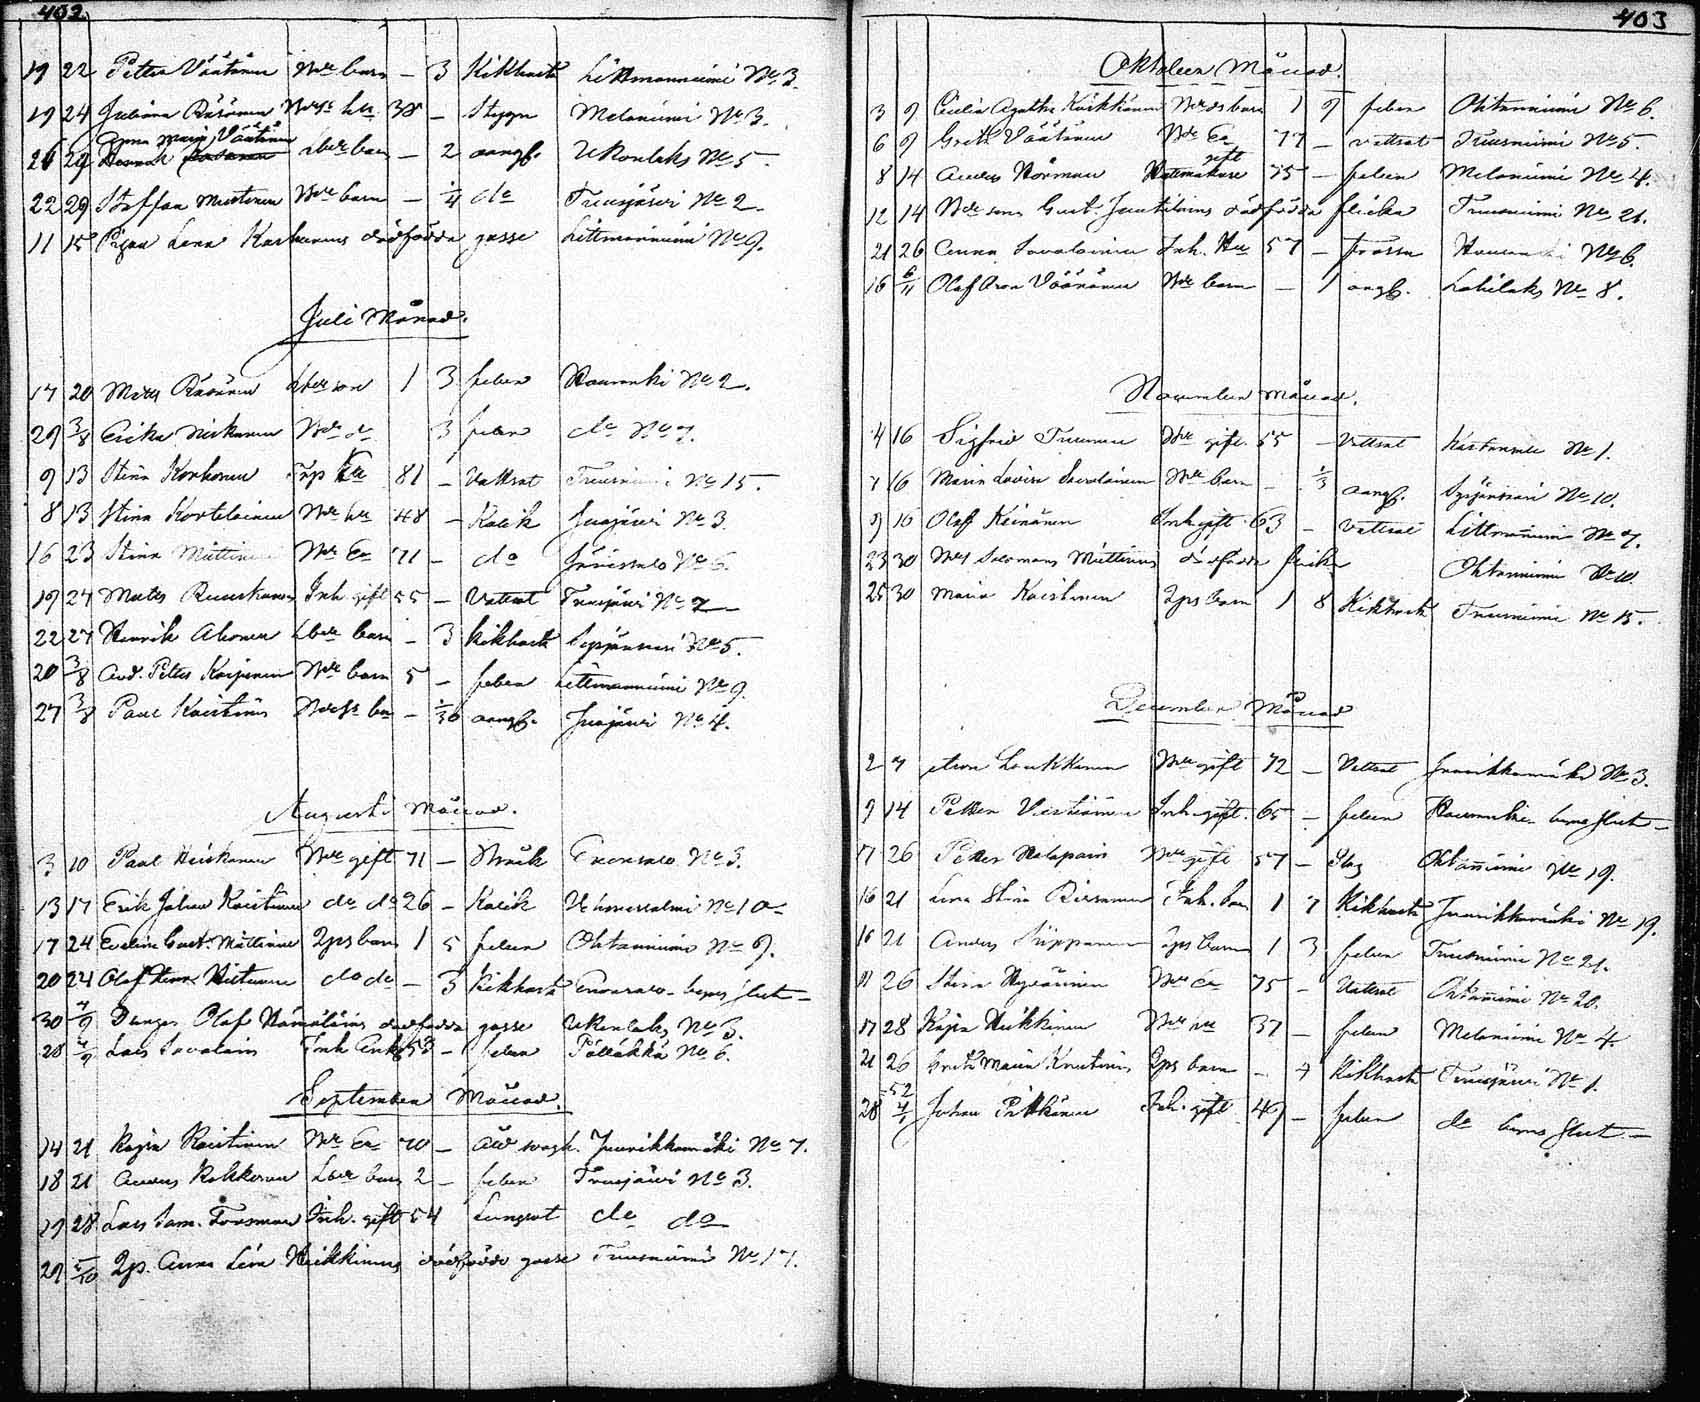 402
19 22 Petter Väätänen Bde barn – 3 Kikhosta Littmanniemi No 3.
19 24 Juliana Räsänen hu 38 – Stygn Melaniemi No 3.
Anna Maja Väätinen
26 29 Lber barn – 2 aangf. Ukonlaks No 5.
22 29 Staffan Mustonen Bde barn – 1/4 do Tuusjärvi No 2
11 15 Pigan Lena Karhunens dödfödda gosse Littmanniemi No 9.
Juli Månad.
17 20 Mats Räsänen Lber son 1 3 feber No 2.
29 3/8 Erika Niskanen Bde do 3 feber do No 7.
9 13 Stina Korhonen Enk 81 – Vattsot Tuusniemi No 15.
8 13 Stina Kortelainen Bde hu 48 – Kolik Juojärvi No 3.
16 23 Stina Miettinen Bde En 71 – do No 6.
19 24 Mats Ruuskanen Inh. gift 55 – Vattsot Tuusjärvi No 2
22 27 Henrik Ahonen Lber barn – 3 Kikhosta No 5.
20 3/8 And. Petter Karjonen Bde barn 5 – feber Littmanniemi No 9.
27 3/8 Paul Koistinen – 1/30 aangf. Juojärvi No 4.
Augusti Månad.
3 10 Paul Niskanen Bde gift 71 – Bråk Enonsalo No 3.
13 17 Erik Johan Koistinen do do 26 – Kolik No 10
17 24 Eveline Gust. Miettinen Lps barn 1 5 feber Ohtaniemi No 9.
20 24 Olof Henr. Hietanen do do – 3 Kikhosta Enonsalo byns slut
30 4/9 Olof Hämäläins dödfödda gosse Ukonlaks No 3.
28 4/9 Lars Savolain Inh. Enkl 53 – feber Pölläkkä No 6.
September Månad.
14 21 Kajsa Koistinen Bde En 70 – Juurikkamäki No 7.
18 21 Anders Kokkonen Lber barn 2 – feber Tuusjärvi No 3.
19 28 Lars Sam. Forsman Inh. gift 54 Lungsot do do
29 5/10 Lps. Anna Lisa Heikkinens dödfödde gosse Tuusniemi No 17.
403
Oktober Månad.
3 9 Cecilia Agatha Barn 1 9 feber Ohtaniemi No 6.
6 9 Greta Väätänen Bde En 77 – vattsot Tuusniemi No 5.
8 14 Anders Hörman gift 75 – feber Melaniemi No 4.
12 14 Bde sons Gust. Juutilains dödfödda flicka Tuusniemi No 21.
21 26 Anna Savolainen Inh. Hu 57 – frossa No 6.
16 6/11 Olof Aron Väänänen Bde barn – 1 aangf. Lahilaks No 8.
November Månad.
4 16 Sigfrid Tuunen Bde gift 55 – Vattsot No 1.
7 16 Maria Lovisa Savolainen Bde barn – 1/3 aangf. No 10.
9 16 Olof Keinänen Inh gift 63 – Vattsot Littmaniemi No 7.
23 30 Salomons Miettinens dödfödda flicka Ohtaniemi No 10
25 30 Maria Koistinen Lps barn 1 8 Kikhosta Tuusniemi No 15.
December Månad
2 7 Aron Loukkanen Bde gift 72 – Vattsot Juurikkamäki No 3.
9 14 Petter Inh gift. 65 – feber byns slut
17 26 Petter Halapain Bde gift 57 – Slag Ohtaniemi No 19.
16 21 Lena Stina Inh. barn 1 7 Kikhosta Juurikkamäki No 19.
16 21 Anders Lps barn 1 3 feber Tuusniemi No 21.
11 26 Stina Hyvärinen Bde En 75 – Vattsot Ohtaniemi No 20.
17 28 Kajsa Heikkinen Bde hu 37 – feber Melaniemi No 4.
21 26 Greta Maria Knutinen Lps barn – 7 Kikhosta Tuusjärvi No 1.
52
28 4/1 Johan Pitkänen Inh. gift 49 – feber do byns slut